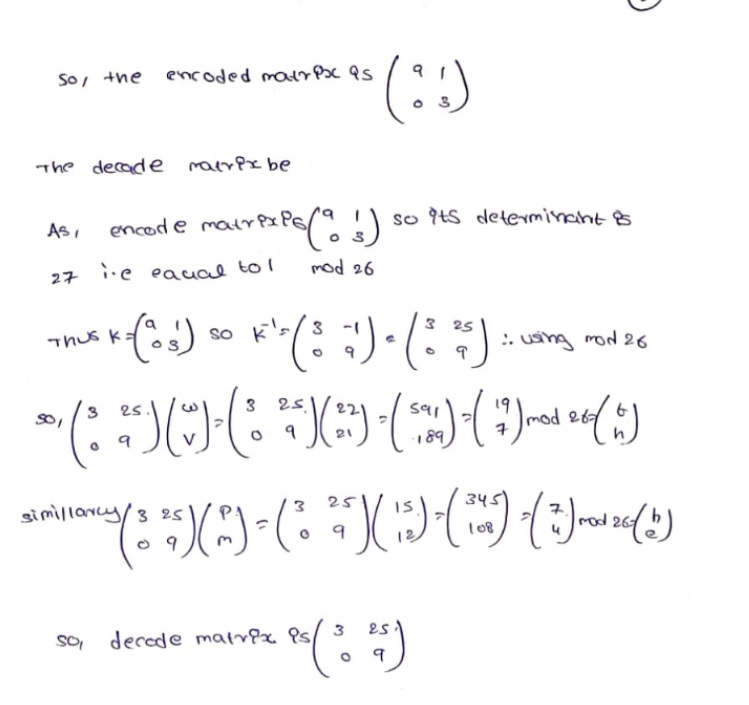 so, the encoded matrix is (9 1 0 3)
The decode matrix be
As, encode matrix is (9 1 0 3) so its determinant is
27 i.e equal to 1 mod 26
Thus K=(9 1 0 3) so K⁻¹=(3 -1 0 9) = (3 25 0 9) ∴ using mod 26
so, (3 25 0 9)(w v)=(3 25 0 9)(22 21)=(591 189)=(19 7) mod 26=(t h)
simillarly (3 25 0 9)(p m)=(3 25 0 9)(15 12)=(345 108)=(7 4) mod 26=(h e)
so, decode matrix is (3 25 0 9)